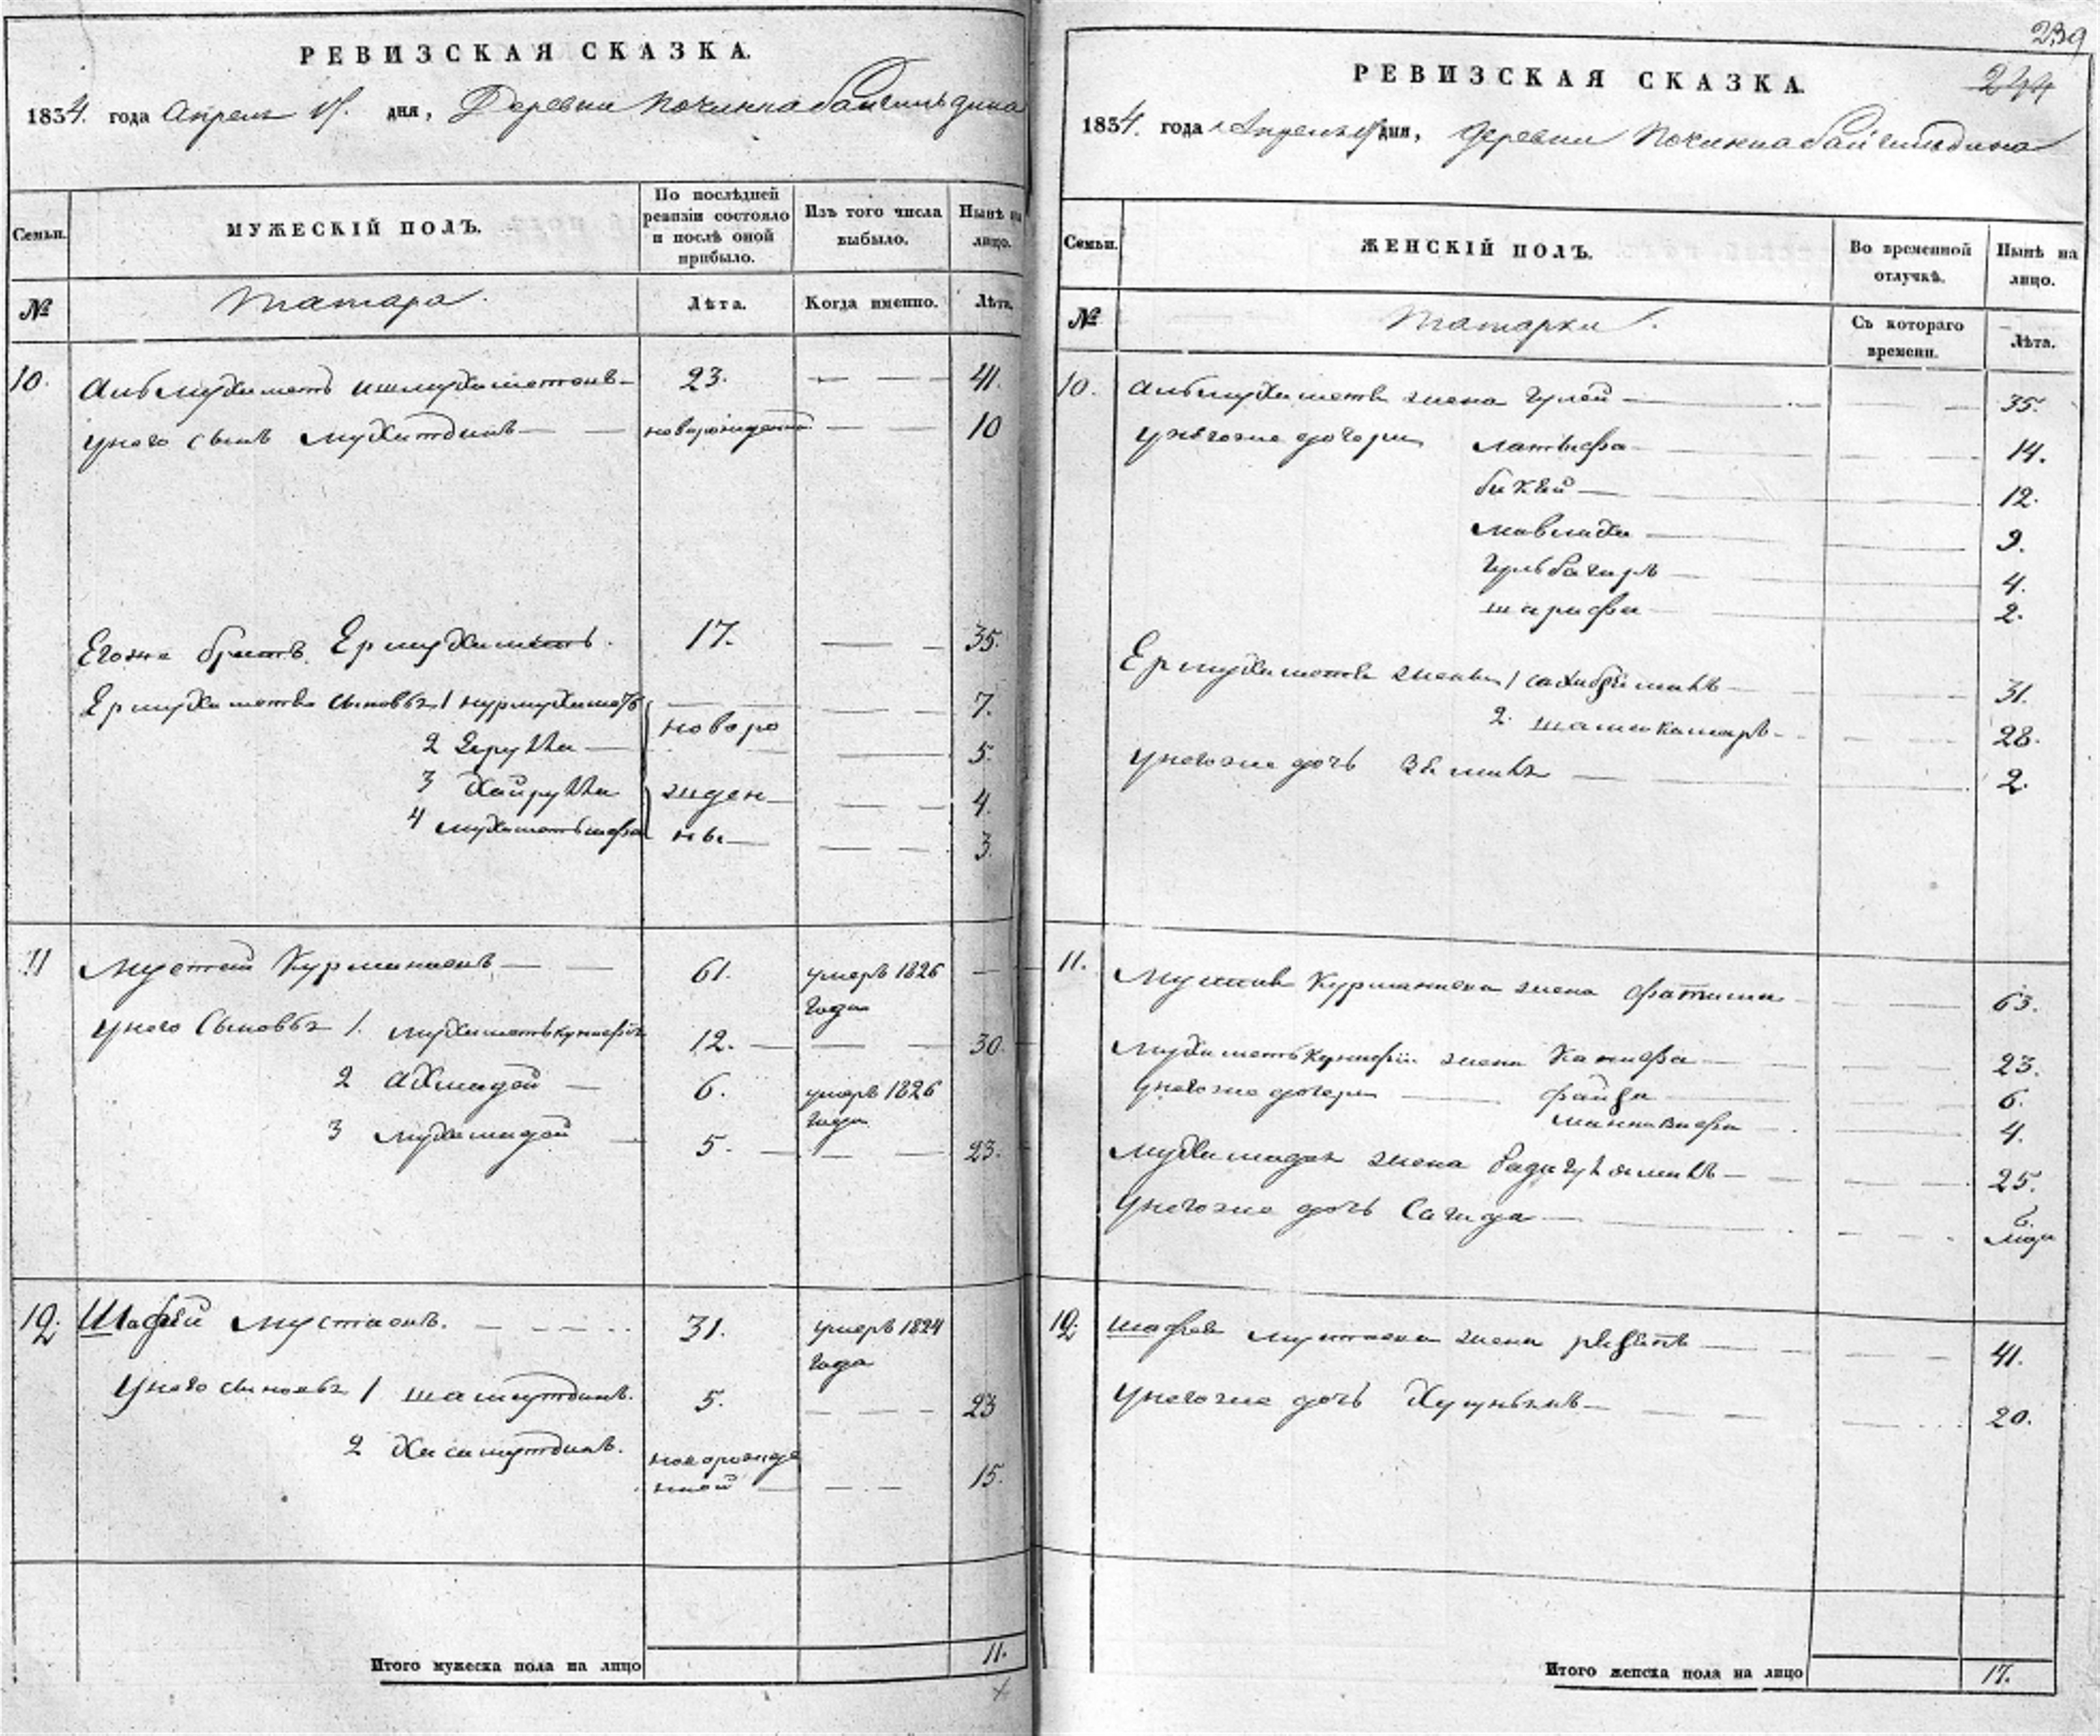 РЕВИЗСКАЯ СКАЗКА.
1834. года Апреля дня, Деревни Починка
Семьи.
МУЖЕСКІЙ ПОЛЪ.
По послѣдней ревизіи состояло и послѣ оной прибыло.
Изъ того числа выбыло.
Нынѣ на лицо.
№
Татара.
Лѣта.
Когда именно.
Лѣта.
10. Альмухаметъ Ишмухаметовъ 23. — — 41.
у него сынъ Мухитдинъ — — новорожденной — — 10
Егоже братъ Ермухаметъ. 17. — — 35.
Ермухаметова сыновья 1 Нурмухаметъ — — 7.
новоро
2 — — — 5.
3 Хайрулла жден — — 4.
4 ны — — 3.
11 Мустай Курманаевъ — — 61. умеръ 1826 —
года
у него сыновья 1. 12. — — 30.
2 Ахмадей — 6. умеръ 1826
года
3 Мухамадей — 5. — — — 23.
12. Шафѣй Мустаевъ. — — — 31. умеръ 1824
года
у него сыновья 1 Шамсутдинъ. 5. — — — 23
2 Хисамутдинъ. новорожде
нной — — — 15.
Итого мужеска пола на лицо 11.
239
244
РЕВИЗСКАЯ СКАЗКА.
1834. года Апреля дня, Деревни Починка
Семьи.
ЖЕНСКІЙ ПОЛЪ.
Во временной отлучкѣ.
Нынѣ на лицо.
№
Татарки.
Съ котораго времени.
Лѣта.
10. Альмухаметова жена Гулей — — — 35.
у негоже дочери Латифа — — — 14.
— — 12.
Мавлиха — — 9.
4.
Шарифа — — 2.
Ермухаметова жены 1 — — — 31.
2. — — — 28.
у негоже дочь — — 2.
11. Мустая Курманаева жена Фатима — — — 63.
жена Канифа — — — 23.
у негоже дочери — Фаиза — — 6.
— — 4.
Мухамадея жена — — — 25.
у негоже дочь Сагида — — — 6.
12. Шафѣя Мустаева жена — — — 41.
у негоже дочь — — — 20.
Итого женска пола на лицо 17.